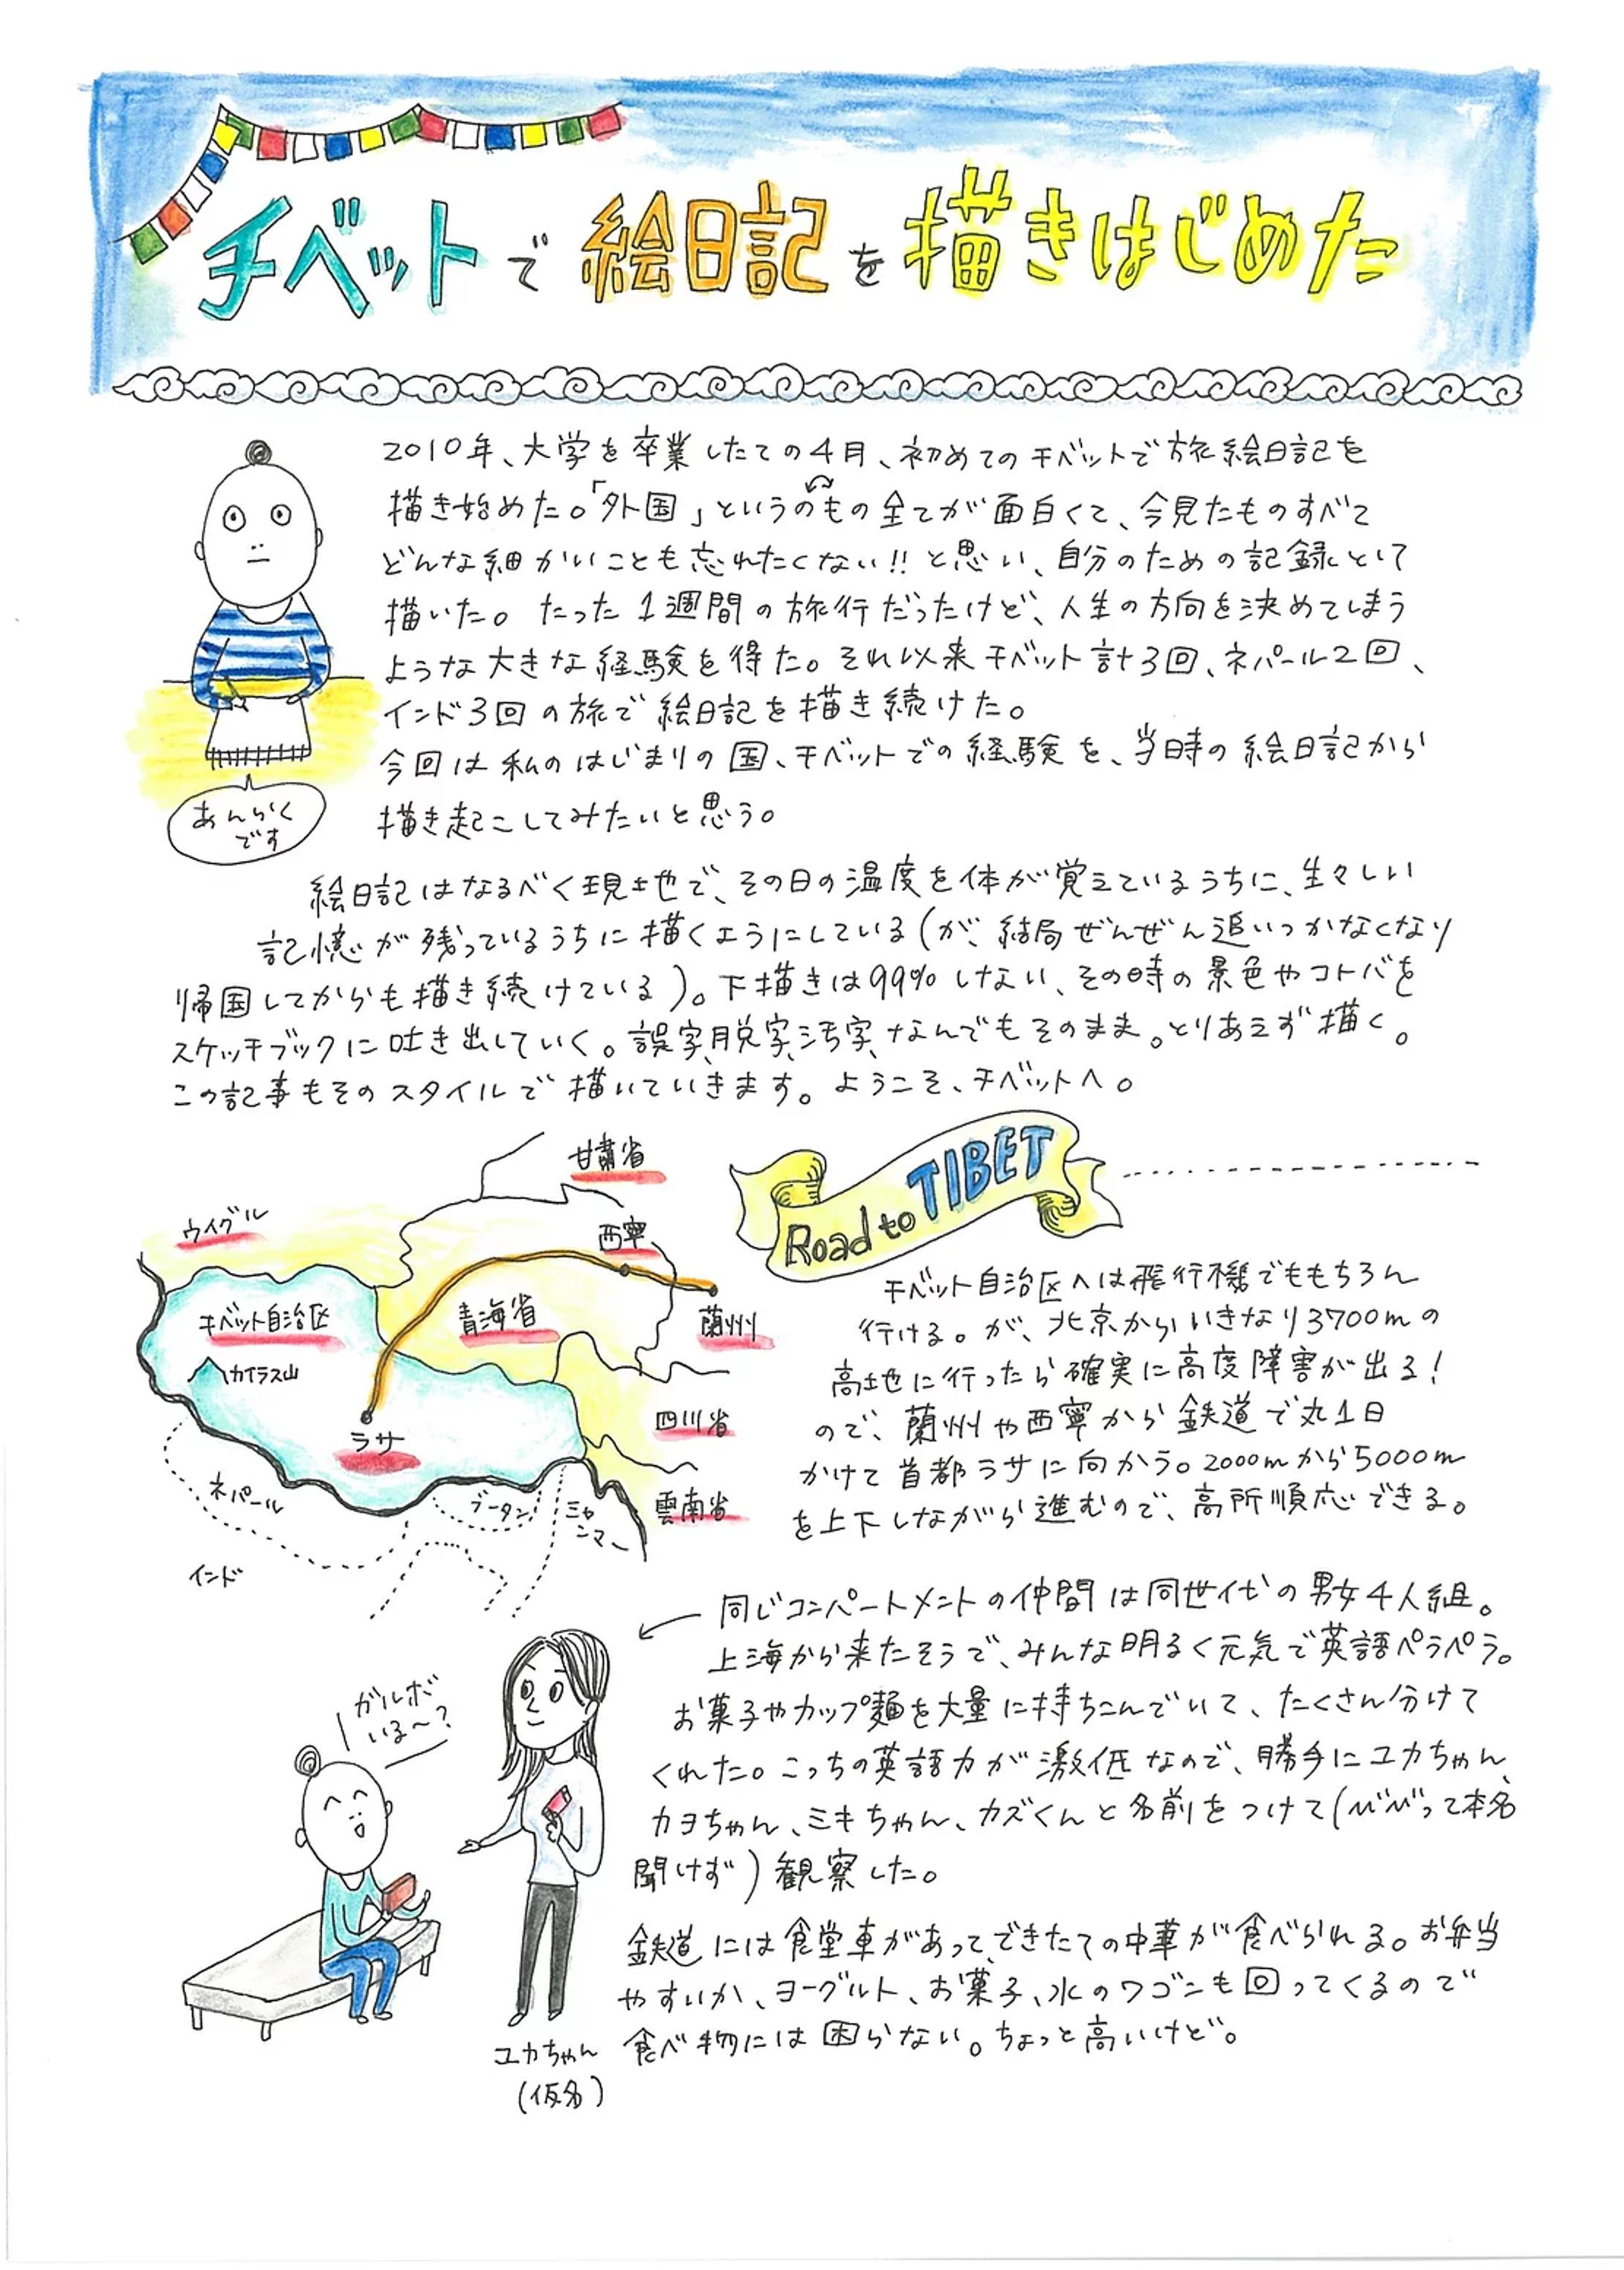 チベットで絵日記を描きはじめた
2010年、大学を卒業したての4月、初めてのチベットで旅絵日記を
描き始めた。「外国」というのもの全てが面白くて、今見たものすべて
どんな細かいことも忘れたくない!!と思い、自分のための記録として
描いた。たった1週間の旅行だったけど、人生の方向を決めてしまう
ような大きな経験を得た。それ以来チベット計3回、ネパール2回、
インド3回の旅で絵日記を描き続けた。
今回は私のはじまりの国、チベットでの経験を、当時の絵日記から
描き起こしてみたいと思う。
あんらく
です
絵日記はなるべく現地で、その日の温度を体が覚えているうちに、生々しい
記憶が残っているうちに描くようにしている(が、結局ぜんぜん追いつかなくなり
帰国してからも描き続けている)。下描きは99%しない、その時の景色やコトバを
スケッチブックに吐き出していく。誤字、脱字、汚字、なんでもそのまま。とりあえず描く。
この記事もそのスタイルで描いていきます。ようこそ、チベットへ。
甘粛省
ウイグル
西寧
チベット自治区
青海省
蘭州
カイラス山
ラサ
四川省
ネパール
ブータン
ミャ
ンマー
雲南省
インド
Road to TIBET
チベット自治区へは飛行機でももちろん
行ける。が、北京からいきなり3700mの
高地に行ったら確実に高度障害が出る!
ので、蘭州や西寧から鉄道で丸1日
かけて首都ラサに向かう。2000mから5000m
を上下しながら進むので、高所順応できる。
同じコンパートメントの仲間は同世代の男女4人組。
上海から来たそうで、みんな明るく元気で英語ペラペラ。
お菓子やカップ麺を大量に持ちこんでいて、たくさん分けて
くれた。こっちの英語力が激低なので、勝手にユカちゃん、
カヨちゃん、ミキちゃん、カズくんと名前をつけて(ビビって本名
聞けず)観察した。
ガルボ
いる〜?
ユカちゃん
(仮名)
鉄道には食堂車があって、できたての中華が食べられる。お弁当
やすいか、ヨーグルト、お菓子、水のワゴンも回ってくるので
食べ物には困らない。ちょっと高いけど。